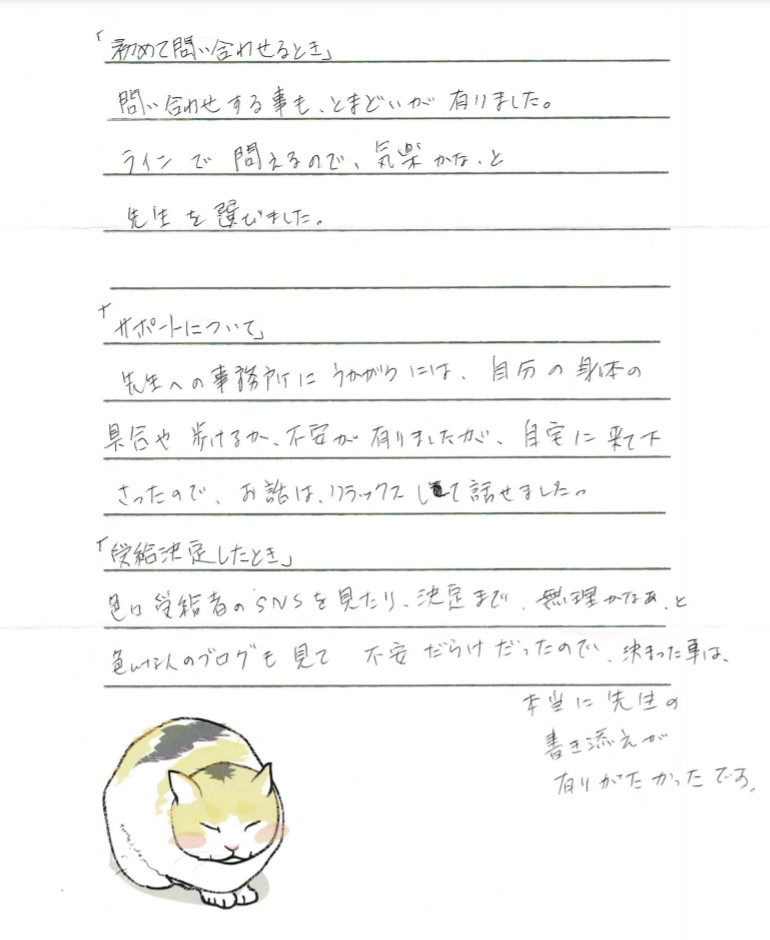 「初めて問い合わせるとき」
問い合わせする事も、とまどいが 有りました。
ラインで 問えるので、気楽かな、と
先生を選びました。
「サポートについて」
先生への事務所にうかがうには、自分の身体の
具合や 歩けるか、不安が有りましたが、自宅に来て下
さったので、お話は、リラックスして話せました。
「受給決定したとき」
色々受給者のSNSを見たり、決定まで、無理かなぁ、と
色んな人のブログも見て 不安だらけだったので、決まった事は、
本当に先生の
書き添えが
有りがたかったです。